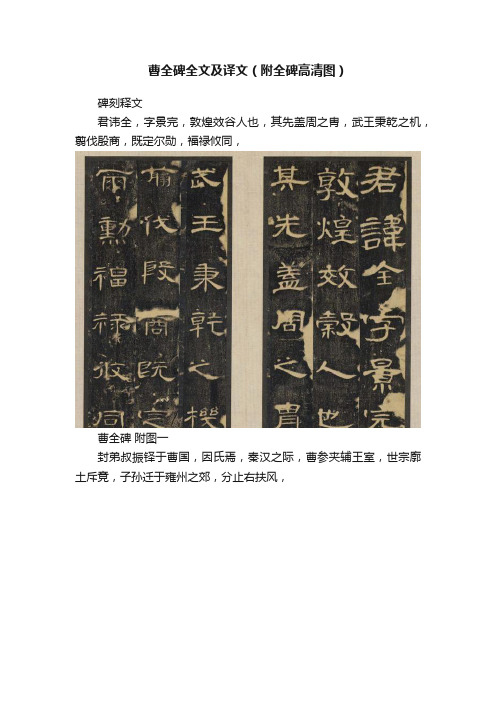 曹全碑全文及译文（附全碑高清图）
碑刻释文
君讳全，字景完，敦煌效谷人也，其先盖周之胄，武王秉乾之机，
翦伐殷商，既定尔勋，福禄攸同，
君諱全字景完
敦煌效穀人也
其先蓋周之胄
武王秉乾之機
翦伐殷商既定
爾勳福祿攸同
曹全碑 附图一
封弟叔振铎于曹国，因氏焉，秦汉之际，曹参夹辅王室，世宗廓
土斥竟，子孙迁于雍州之郊，分止右扶风，